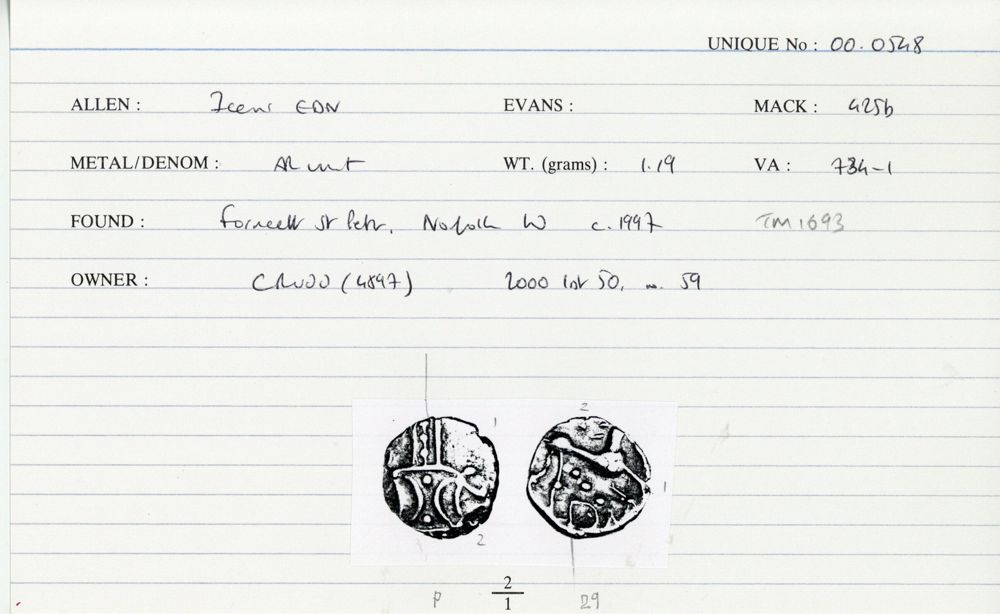 UNIQUE No : 00.0548
ALLEN : Iceni EDN EVANS : MACK : 425b
METAL/DENOM : AR unit WT. (grams) : 1.19 VA : 734-1
FOUND : Forncett St Peter, Norfolk W c.1997 TM1693
OWNER : CRUDD (4897) 2000 list 50, no. 59
2
1
1
2
P 2/1 29